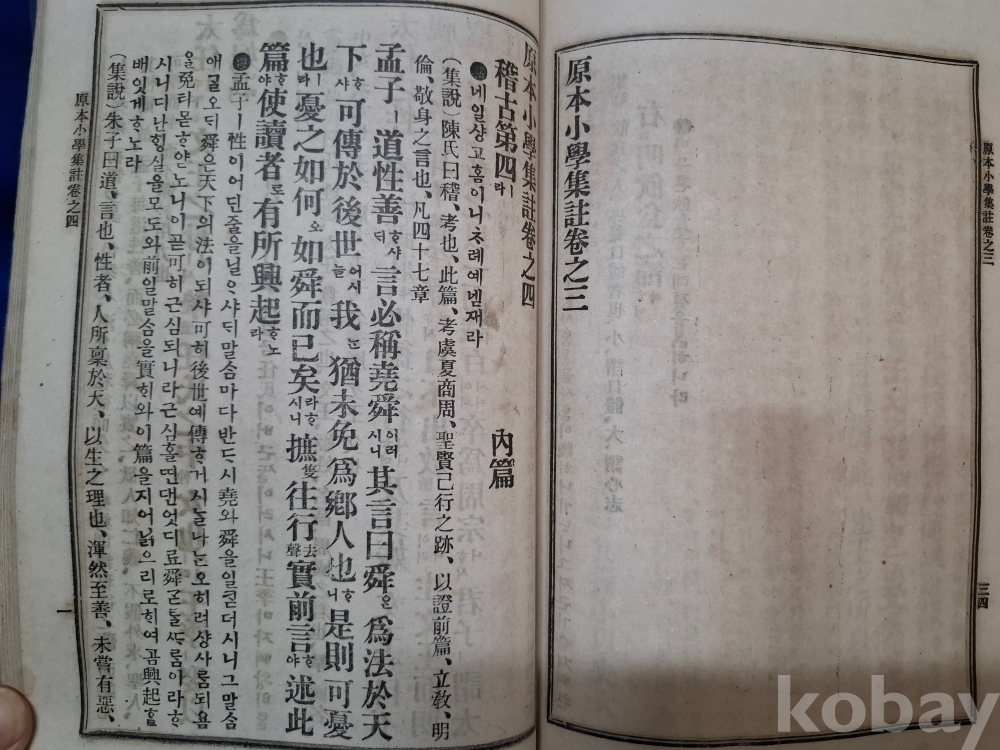 原本小學集註卷之三
三四
原本小學集註卷之三
原本小學集註卷之四
稽古第四ㅣ라 內篇
녜일샹고홈이니ᄎᆞ례예넫재라
(集說)陳氏曰稽、考也、此篇、考虞夏商周、聖賢已行之跡、以證前篇、立敎、明
倫、敬身之言也、凡四十七章
孟子ㅣ道性善ᄒᆞ샤ᄃᆡ言必稱堯舜이러시니其言曰舜은爲法於天
下ᄒᆞ샤可傳於後世어시늘我ᄂᆞᆫ猶未免爲鄕人也ᄒᆞ니是則可憂
也ㅣ라憂之如何오如舜而已矣라ᄒᆞ시니摭隻往行去聲實前言ᄒᆞ야述此
篇ᄒᆞ야使讀者로有所興起ᄒᆞ노라
孟子ㅣ性이어딘줄을닐ᄋᆞ샤ᄃᆡ말ᄉᆞᆷ마다반ᄃᆞ시堯와舜을일ᄏᆞᆮ더시니그말ᄉᆞᆷ
애ᄀᆞᆯ오ᄃᆡ舜은天下의法이되샤可히後世예傳ᄒᆞ거시ᄂᆞᆯ나ᄂᆞᆫ오히려샹사ᄅᆞᆷ되욤
을免티몯ᄒᆞ얀노니이곧可히근심되니라근심홀띤댄엇디료舜ᄀᆞᆮ틀ᄯᆞᄅᆞᆷ이라ᄒᆞ
시니디난ᄒᆡᆼ실을모도와前일말ᄉᆞᆷ을實히와이篇을지어닑으리로ᄒᆡ여곰興起ᄒᆞᆯ
배잇게ᄒᆞ노라
(集說)朱子曰道、言也、性者、人所稟於天、以生之理也、渾然至善、未嘗有惡、
原本小學集註卷之四
一
kobay